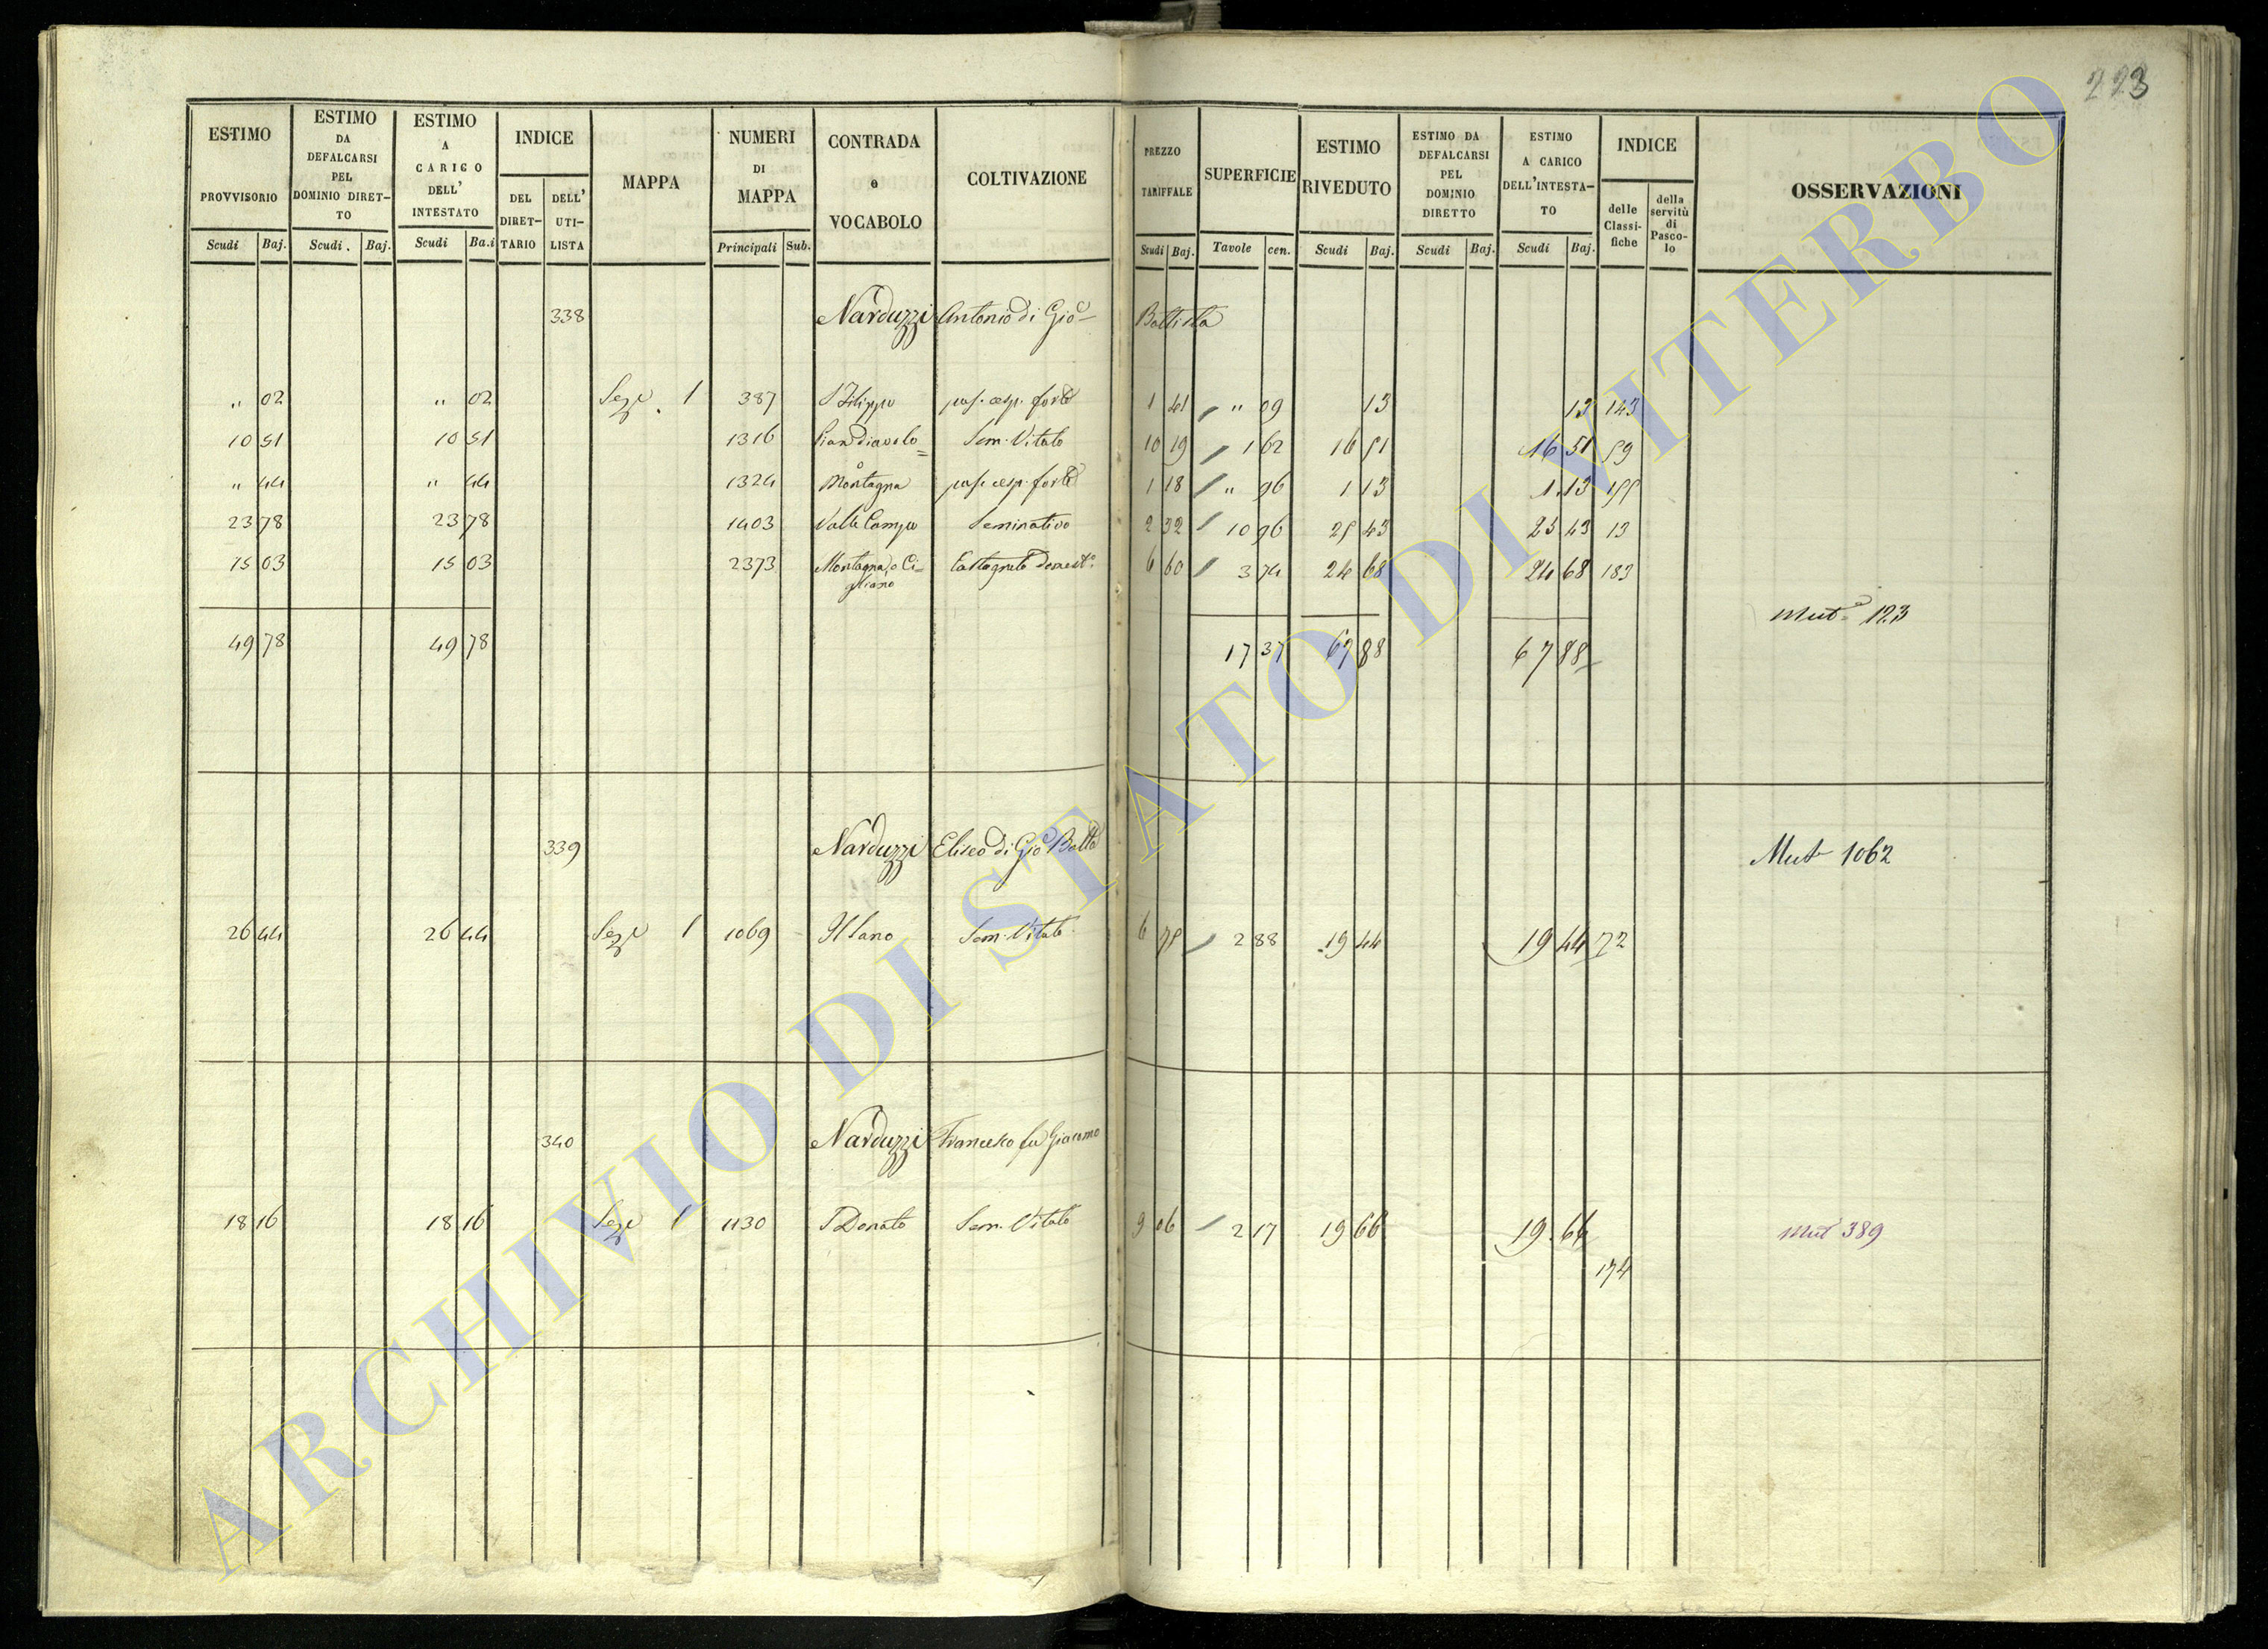 223
ESTIMO PROVVISORIO
ESTIMO DA DEFALCARSI PEL DOMINIO DIRET-TO
ESTIMO A CARICO DELL' INTESTATO
INDICE
DEL DIRET-TARIO
DELL' UTI-LISTA
MAPPA
NUMERI DI MAPPA
CONTRADA o VOCABOLO
COLTIVAZIONE
PREZZO TARIFFALE
SUPERFICIE
ESTIMO RIVEDUTO
ESTIMO DA DEFALCARSI PEL DOMINIO DIRETTO
ESTIMO A CARICO DELL'INTESTA-TO
INDICE
delle Classi-fiche
della servitù di Pasco-lo
OSSERVAZIONI
Scudi Baj. Scudi. Baj. Scudi Ba.i Principali Sub. Scudi Baj. Tavole cen. Scudi Baj. Scudi Baj. Scudi Baj.
338 Narduzzi Antonio di Gio Battista
" 02 " 02 Seze 1 387 S Filippo pas. cesp. forte 1 41 " 09 13 13 143
10 51 10 51 1316 Piandiavolo Sem. Vitato 10 19 1 62 16 51 16 51 59
" 44 " 44 1324 Montagna pas. cesp. forte 1 18 " 96 1 13 1.13 155
23 78 23 78 1403 Valle Campo Seminativo 2 32 10 96 25 43 25 43 13
15 03 15 03 2373 Montagna, o Ci-gliano Castagneto domest.o 6 60 3 74 24 68 24 68 183
Mut.e 123
49 78 49 78 17 37 67 88 67 88
339 Narduzzi Eliseo di Gio Batta
Mut 1062
26 44 26 44 Seze 1 1069 Il Sano Sem. Vitato 6 75 2 88 19 44 19 44 72
340 Narduzzi Francesco fu Giacomo
18 16 18 16 Seze 1 1130 S Donato Sem. Vitato 9 06 2 17 19 66 19.66 Mut 389
174
ARCHIVIO DI STATO DI VITERBO